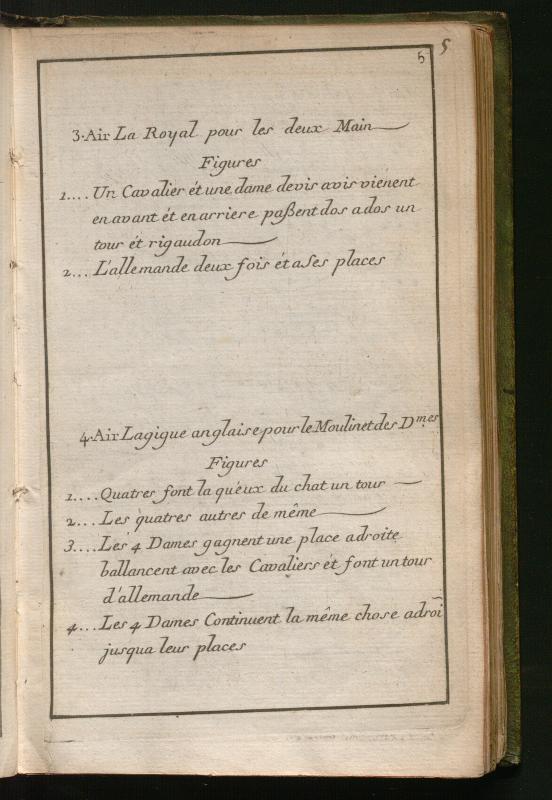 5
5
3. Air La Royal pour les deux Main
Figures
1.... Un Cavalier ét une dame devis avis vienent
en avant ét en arriere paßent dos a dos un
tour ét rigaudon
2... L'allemande deux fois ét a Ses places
4. Air Lagigue anglaise pour le Moulinet des D.mes
Figures
1.... Quatres font la quéux du chat un tour
2... Les quatres autres de même
3.... Les 4 Dames gagnent une place adroite
ballancent avec les Cavaliers ét font un tour
d'allemande
4... Les 4 Dames Continuent la même chose adroi̅
jusqua leur places